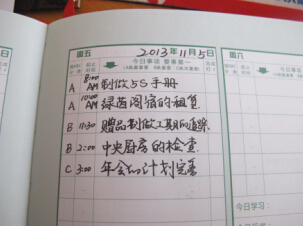 周五 2013年11月5日 周六
今日事项 要事第一
A 8:00 AM 制做5S手册
A 10:00 AM 绿茵阁宿的租赁
B 11:30 赠品制做工期的追踪
B 2:00 中央厨房的检查
C 3:00 年会的计划完善
今日学习:
今日